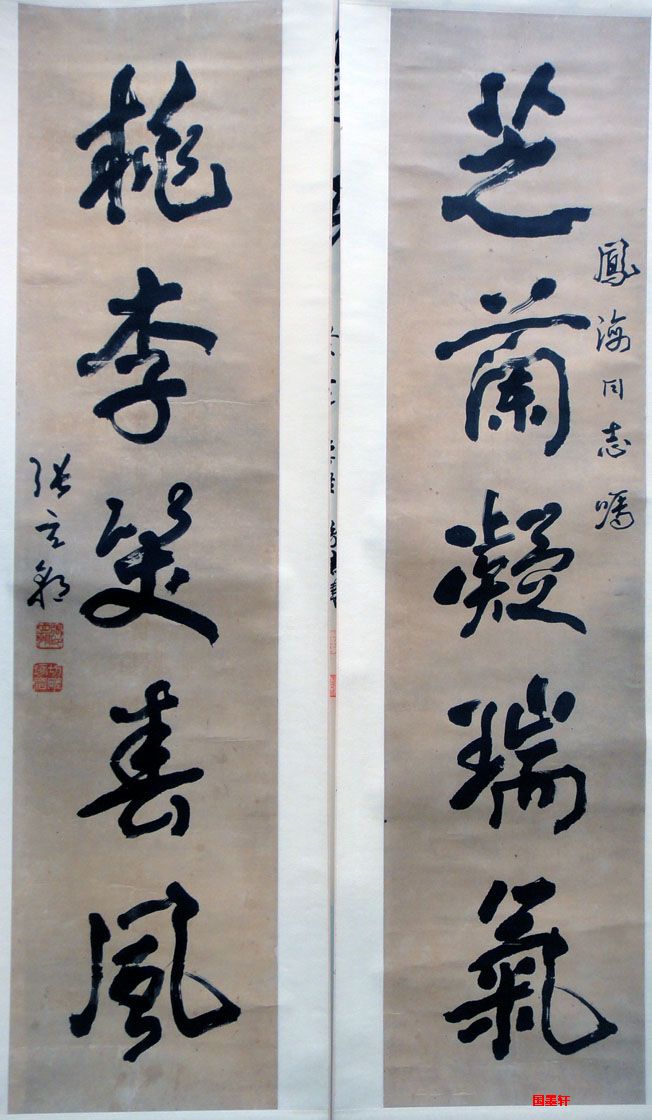 芝蘭凝瑞氣
鳳海同志嘱
桃李笑春風
張
国墨轩